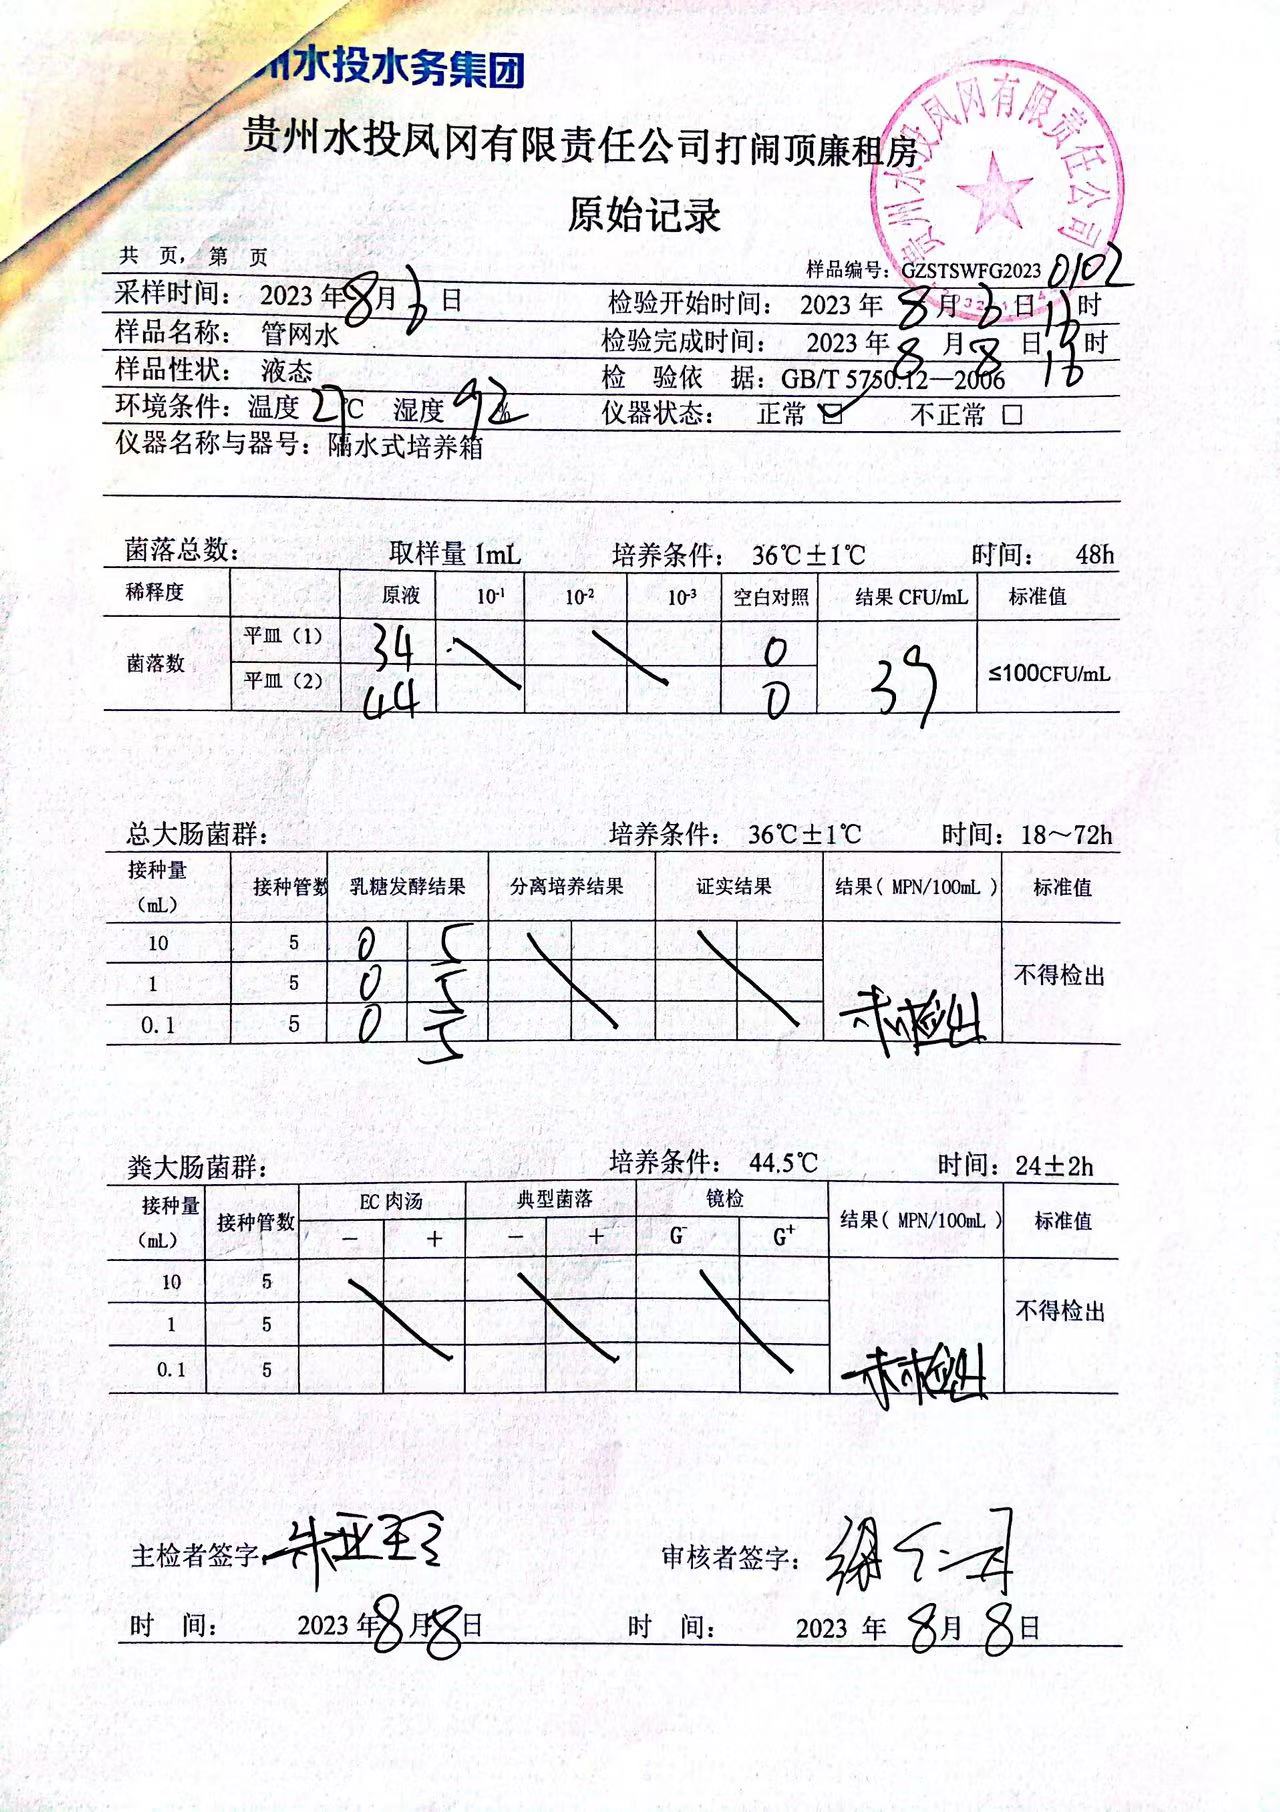 州水投水务集团
贵州水投凤冈有限责任公司打闹顶廉租房
原始记录
贵州水投凤冈有限责任公司
共 页，第 页 样品编号：GZSTSWFG2023 0102
采样时间： 2023 年 8 月 6 日 检验开始时间： 2023 年 8 月 6 日 16 时
样品名称： 管网水 检验完成时间： 2023 年 8 月 8 日 16 时
样品性状： 液态 检 验依 据：GB/T 5750.12—2006
环境条件：温度 ℃ 湿度 92 % 仪器状态： 正常 ☑ 不正常 □
仪器名称与器号：隔水式培养箱
菌落总数： 取样量 1mL 培养条件： 36℃±1℃ 时间： 48h
稀释度 原液 10-1 10-2 10-3 空白对照 结果 CFU/mL 标准值
菌落数 平皿（1） 34 0 39 ≤100CFU/mL
平皿（2） 44 0
总大肠菌群： 培养条件： 36℃±1℃ 时间：18～72h
接种量（mL） 接种管数 乳糖发酵结果 分离培养结果 证实结果 结果（ MPN/100mL ） 标准值
10 5 0 5 未检出 不得检出
1 5 0 5
0.1 5 0 5
粪大肠菌群： 培养条件： 44.5℃ 时间：24±2h
接种量（mL） 接种管数 EC 肉汤 典型菌落 镜检 结果（ MPN/100mL ） 标准值
－ ＋ － ＋ G- G+
10 5 未检出 不得检出
1 5
0.1 5
主检者签字： 朱亚玲 审核者签字：
时 间： 2023 年 8 月 8 日 时 间： 2023 年 8 月 8 日